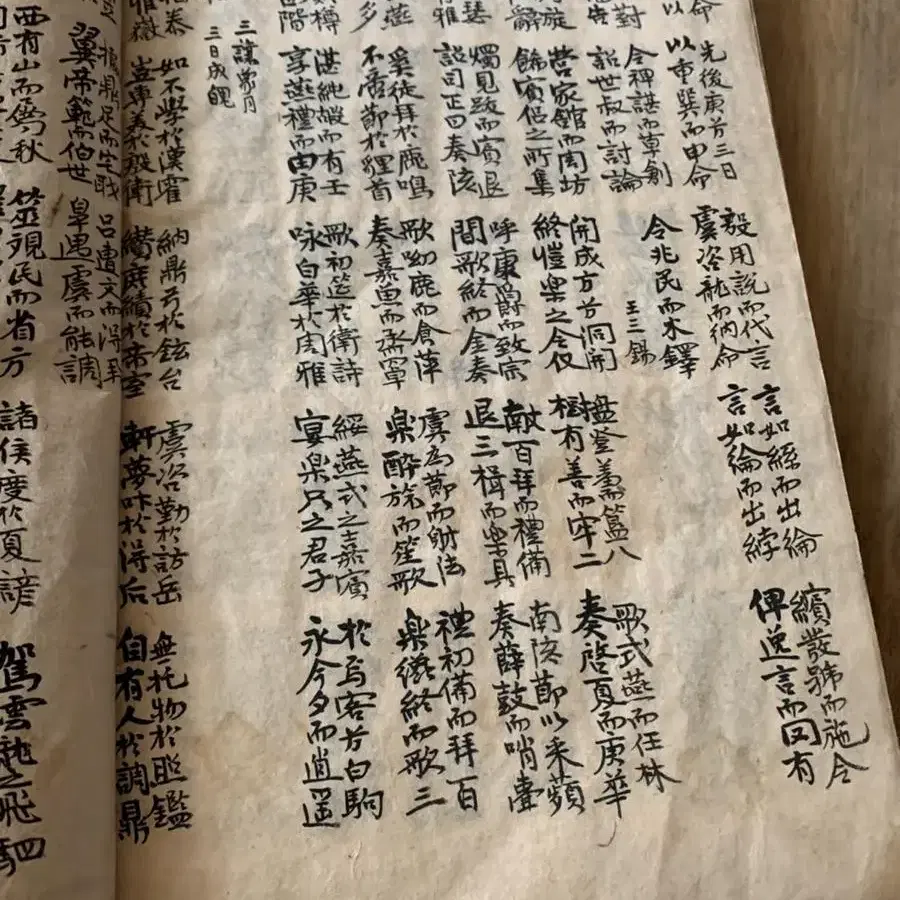 先後庚兮三日
以重巽而申命
說用說而代言
虞咨龍而納命
言如絲而出綸
言如綸而出綍
繽發號而施令
俾逸言而罔有
令裨諶而草創
詔世叔而討論
令兆民而木鐸
王三錫
營家館而周坊
餘賓侶之所集
開成方兮洞開
終愷樂之令儀
盤登羞而簋八
樹有善而牢二
歌式燕而任林
奏啓夏而庚華
燭見跋而賓退
詔司正曰奏陔
呼康爵而致宗
間歌終而金奏
獻百拜而禮備
退三楫而樂具
南陔節以采蘋
奏薛鼓而哨壺
奚徒拜於鹿鳴
不啻節於貍首
歌呦鹿而食萍
奏嘉魚而烝罩
虞爲節而射法
樂酬旅而笙歌
禮初備而拜百
樂纔終而歌三
湛純嘏而有壬
享燕禮而由庚
歌初筵於衛詩
咏白華於周雅
綏燕式之嘉賓
宴樂只之君子
於焉客兮白駒
永今夕而逍遥
三讓象月
三日成魄
如不學於漢霍
豈專美於殷衛
納鼎弓於鉉台
纘庶績於帝室
虞咨勤於訪岳
軒夢於得后
無托物於昭鑑
自有人於調鼎
鼎足而定職
翼帝範而伯世
呂遺文而得
皐遇虞而能調
西有山而傷秋
筮觀民而省方
諸侯度於夏諺
駕雲龍之飛駟